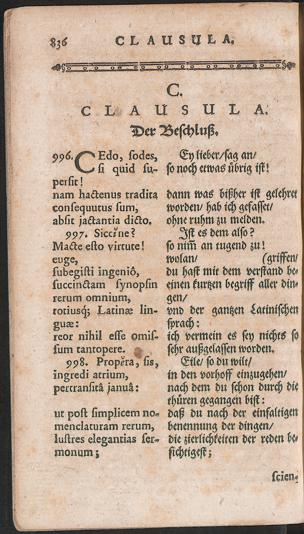 836 CLAUSULA.
C.
CLAUSULA.
Der Beschluß.
996. CEdo, sodes,
si quid su-
persit!
nam hactenus tradita
consequutus sum,
absit jactantia dicto.
997. Siccĭne?
Macte esto virtute!
euge,
subegisti ingeniô,
succinctam synopsin
rerum omnium,
rotiusq; Latinæ lin-
guæ:
reor nihil esse omis-
sum tantopere.
998. Propĕra, sis,
ingredi atrium,
pertransitâ januâ:
ut post simplicem no-
menclaturam rerum,
lustres elegantias ser-
monum;
Ey lieber/sag an/
so noch etwas übrig ist!
dann was bißher ist gelehret
worden/hab ich gefasset/
ohne ruhm zu melden.
Ist es dem also?
so nim̃ an tugend zu!
wolan/ (griffen/
du hast mit dem verstand be-
einen kurtzen begriff aller din-
gen/
vnd der gantzen Latinischen
sprach:
ich vermein es sey nichts so
sehr außgelassen worden.
Eile/ so du wilt/
in den vorhoff einzugehen/
nach dem du schon durch die
thüren gegangen bist:
daß du nach der einfaltigen
benennung der dingen/
die zierlichkeiten der reden be-
sichtigest;
scien-